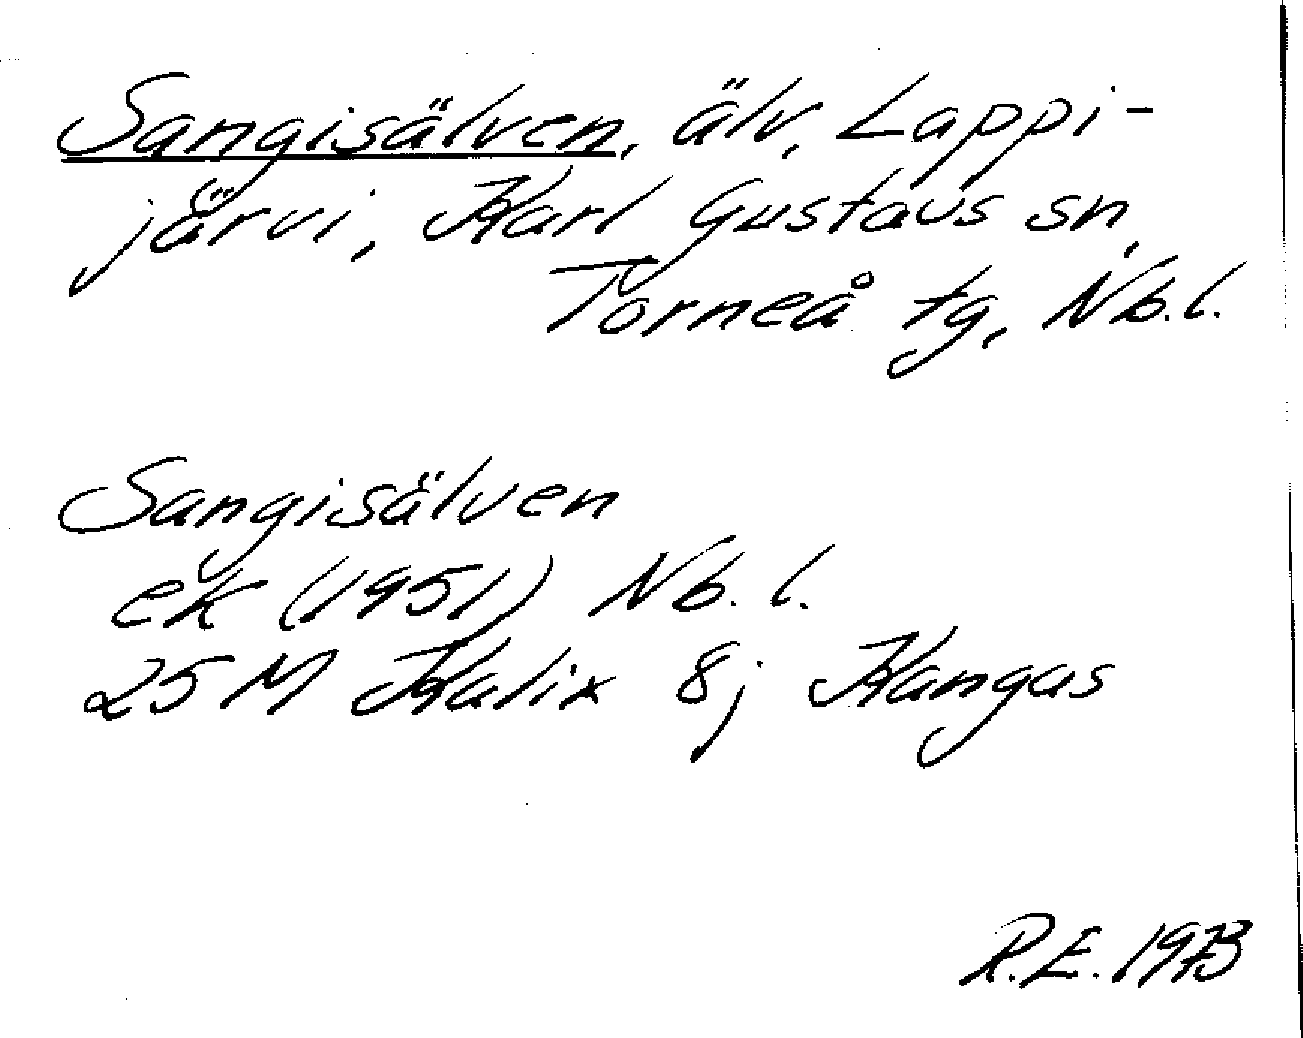 Sangisälven, älv, Lappi-
järvi, Karl Gustavs sn,
Torneå tg, Nb.l.
Sangisälven
ek (1951) Nb. l.
25 M Kalix 8j Kangas
R.E. 1973